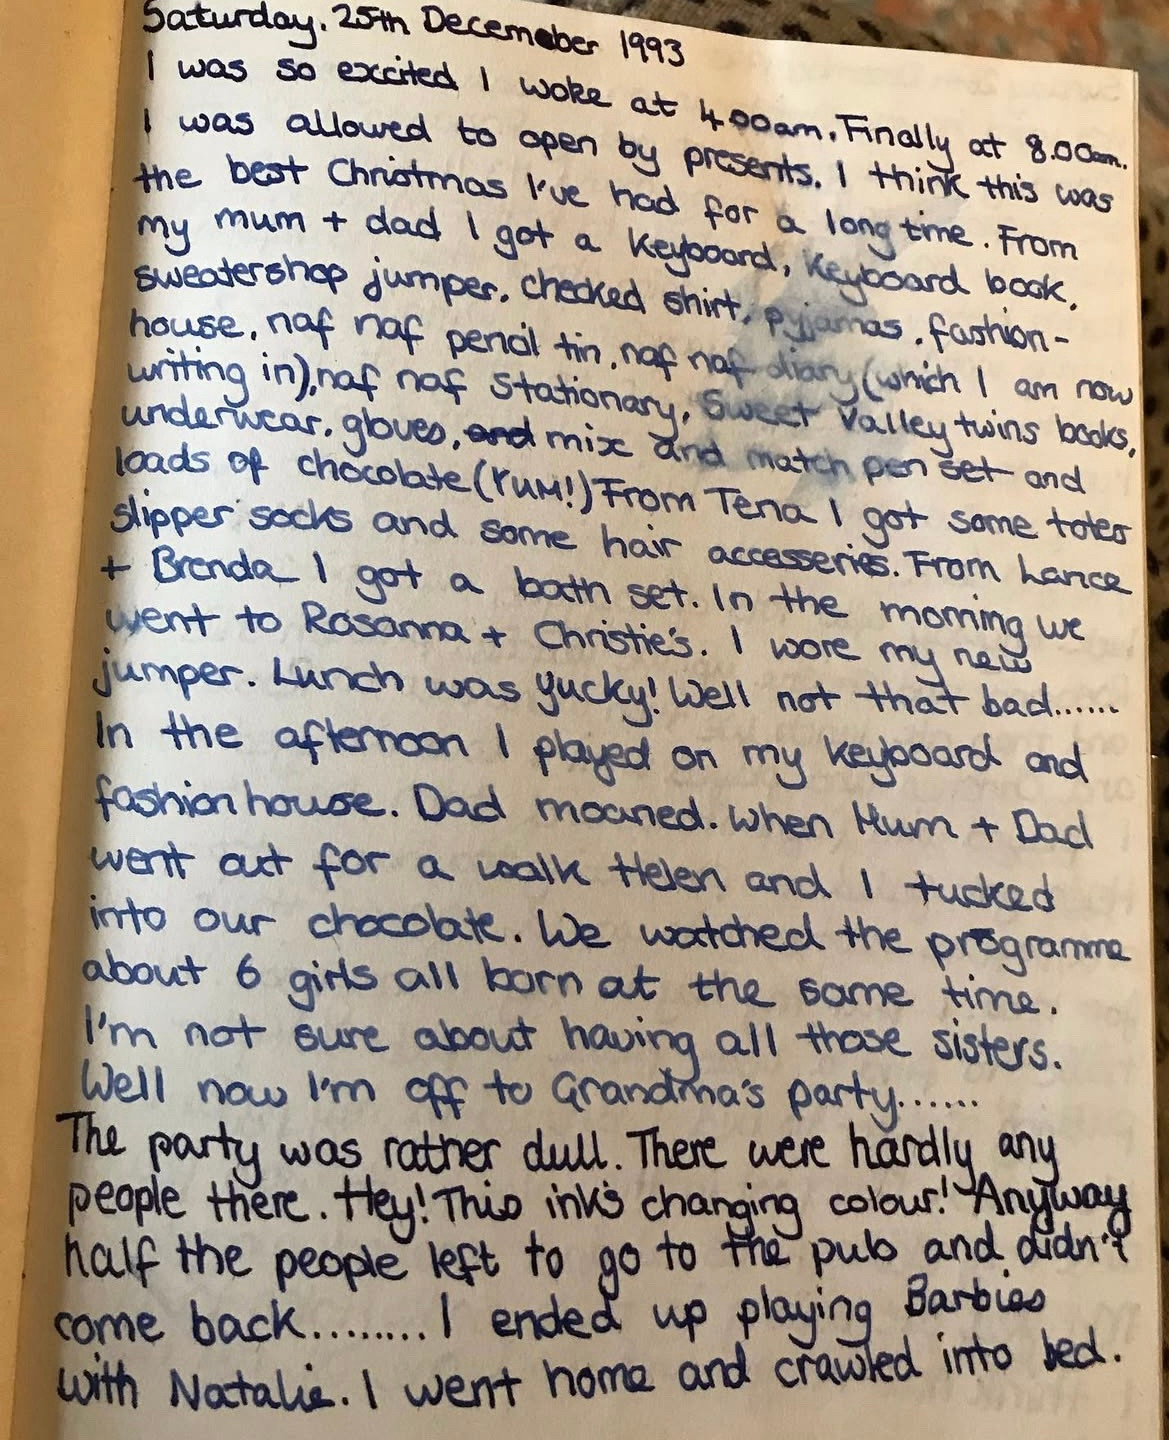 Saturday. 25th December 1993
I was so excited I woke at 4.00am. Finally at 8.00am.
I was allowed to open by presents. I think this was
the best Christmas I've had for a long time. From
my mum + dad I got a Keyboard, Keyboard book,
sweatershop jumper, checked shirt, pyjamas, fashion-
house, naf naf pencil tin, naf naf diary (which I am now
writing in), naf naf stationary, Sweet Valley twins books,
underwear, gloves, and mix and match pen set and
loads of chocolate (YUM!) From Tena I got some totes
slipper socks and some hair accesseries. From Lance
+ Brenda I got a bath set. In the morning we
went to Rosanna + Christie's. I wore my new
jumper. Lunch was yucky! Well not that bad......
In the afternoon I played on my keyboard and
fashion house. Dad moaned. When Mum + Dad
went out for a walk Helen and I tucked
into our chocolate. We watched the programme
about 6 girls all born at the same time.
I'm not sure about having all those sisters.
Well now I'm off to Grandma's party......
The party was rather dull. There were hardly any
people there. Hey! This ink's changing colour! Anyway
half the people left to go to the pub and didn't
come back........ I ended up playing Barbies
with Natalie. I went home and crawled into bed.